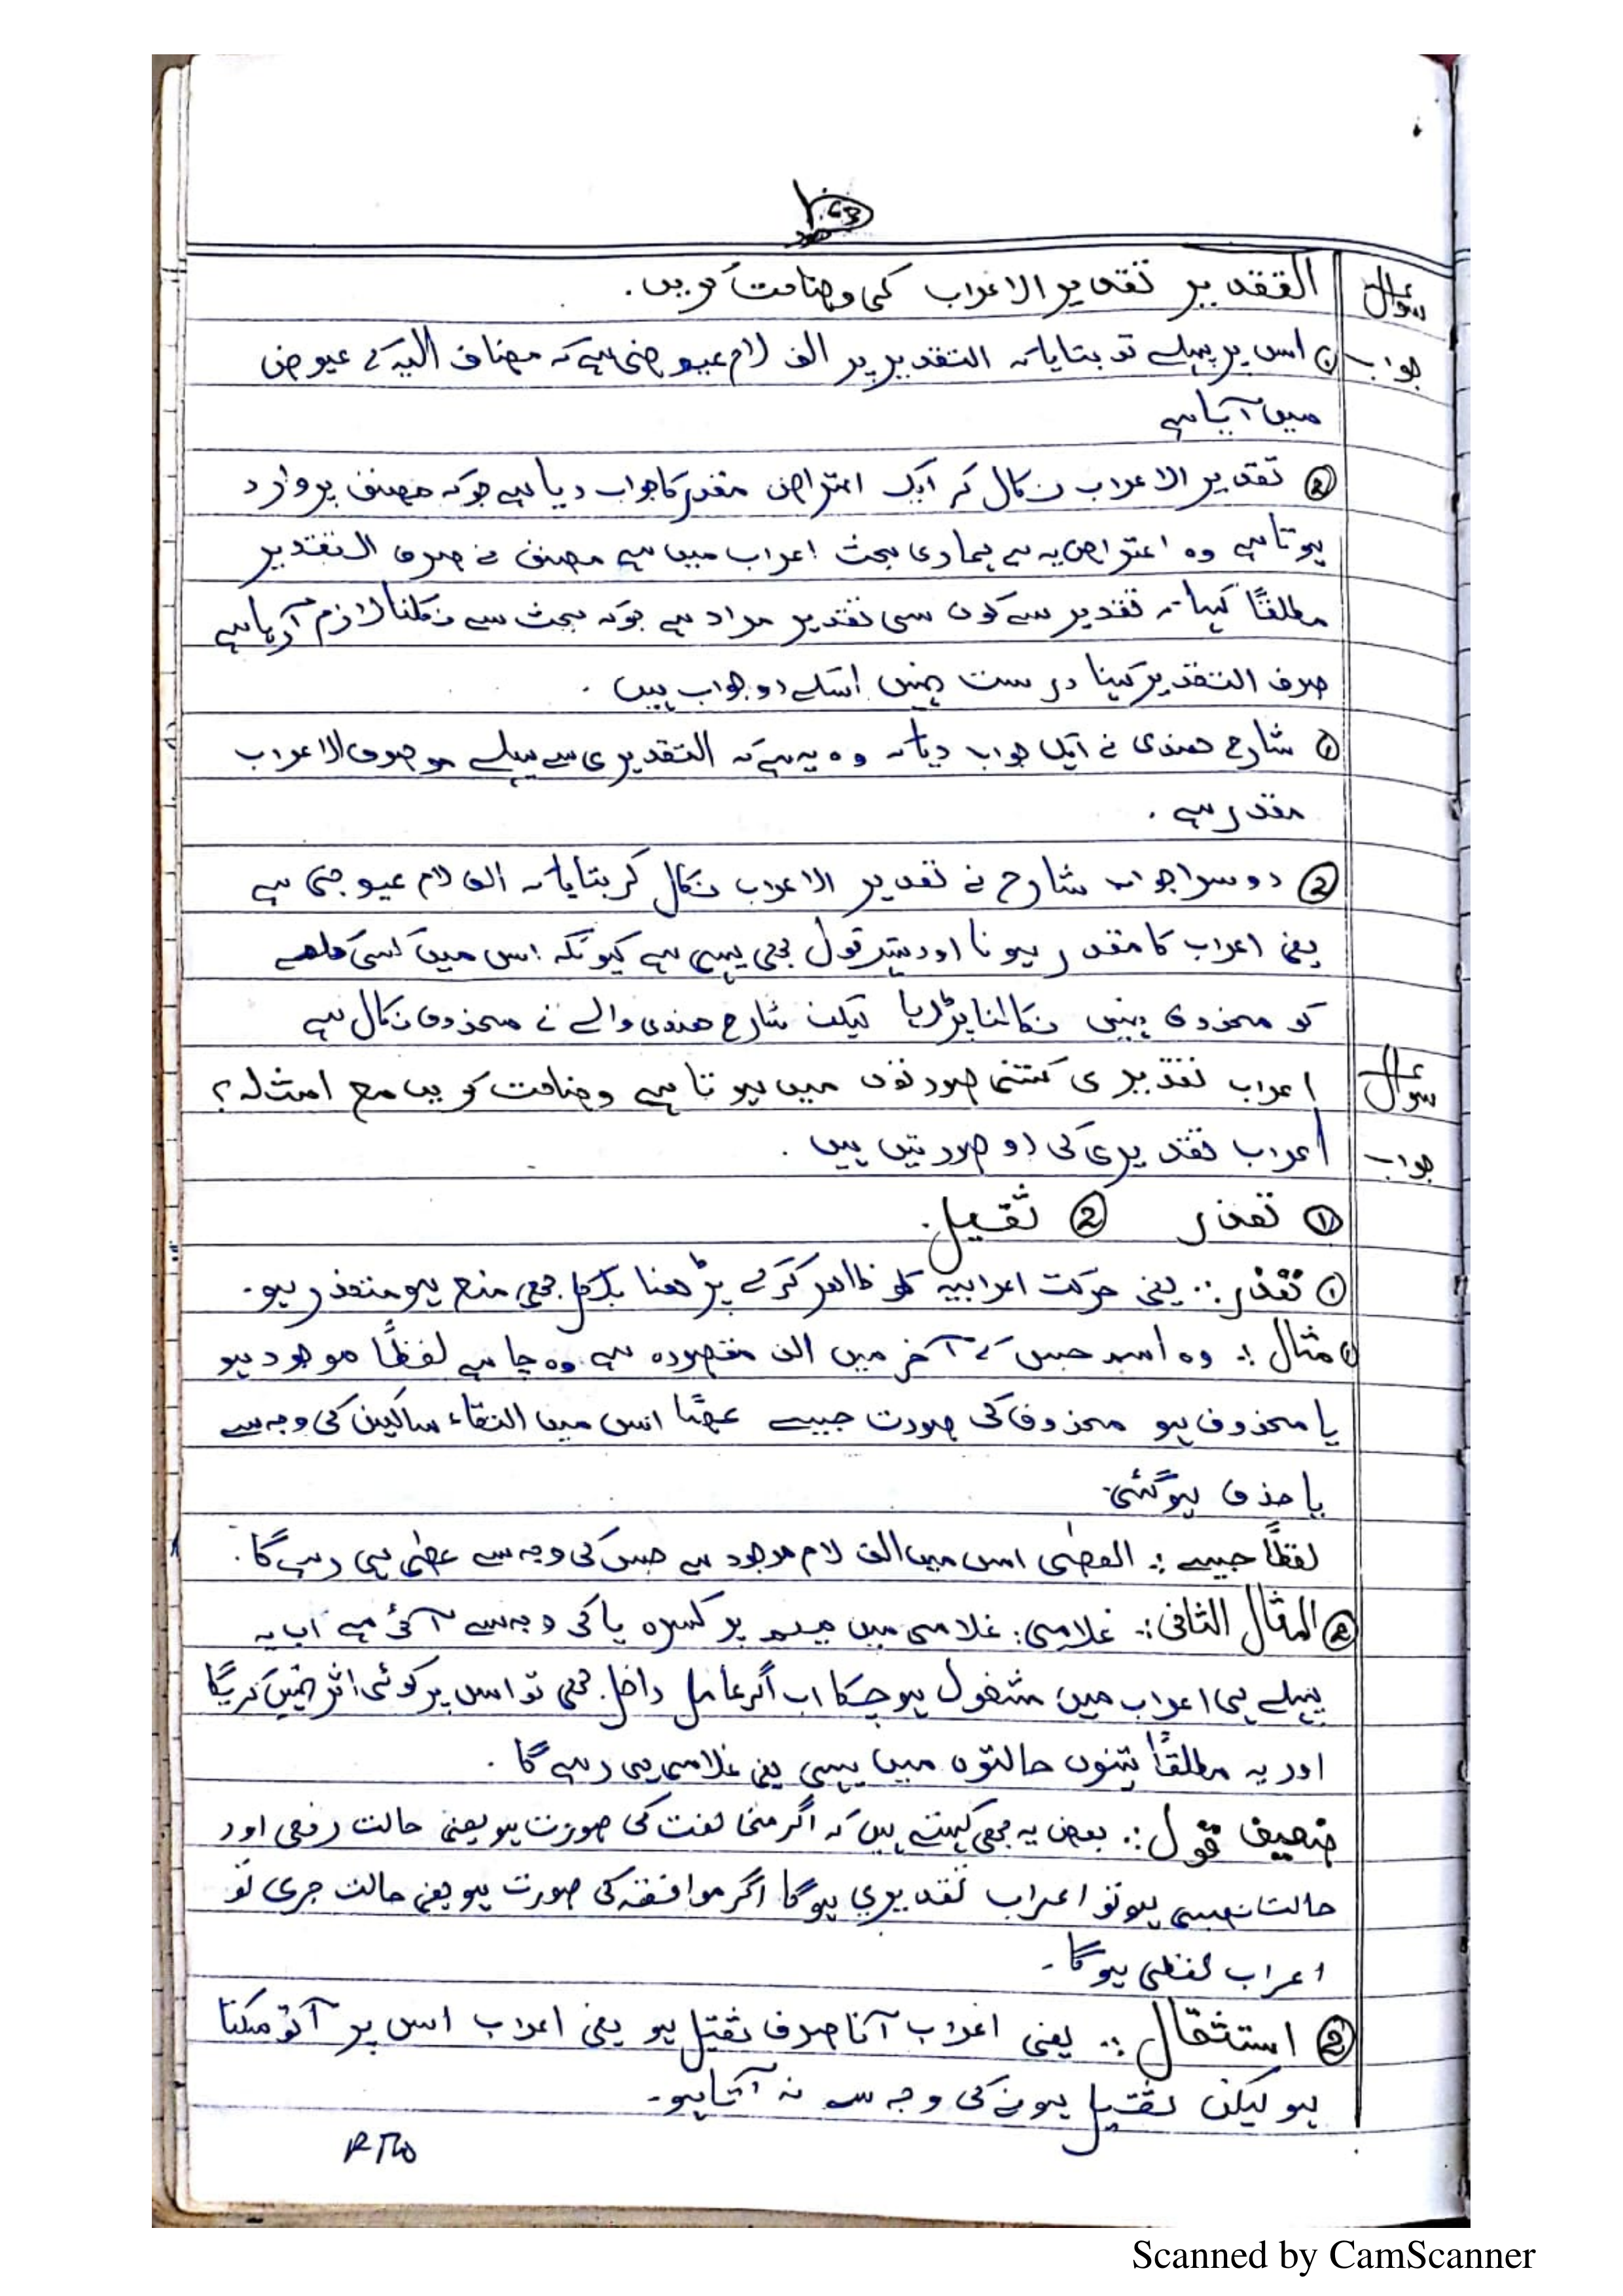 63
سوال التقدیر تقدیر الاعراب کی وضاحت کریں۔
جواب ① اس پر پہلے تو بتایا کہ التقدیر پر الف لام عیوضی ہے کہ مضاف الیہ کے عیوض
میں آیا ہے
② تقدیر الاعراب نکال کر ایک اعتراض مقدر کا جواب دیا ہے جو کہ مصنف پر وارد
ہوتا ہے وہ اعتراض یہ ہے ہماری بحث اعراب میں ہے مصنف نے صرف التقدیر
مطلقًا کہا کہ تقدیر سے کون سی تقدیر مراد ہے جو کہ بحث سے نکلنا لازم آرہا ہے
صرف التقدیر کہنا درست نہیں اسکے دو جواب ہیں ۔
① شارح ھندی نے ایک جواب دیا کہ وہ یہ ہے کہ التقدیری سے پہلے موصوف الاعراب
مقدر ہے ۔
② دوسرا جواب شارح نے تقدیر الاعراب نکال کر بتایا کہ الف لام عیوضی ہے
یعنی اعراب کا مقدر ہونا اور بہتر قول بھی یہی ہے کیونکہ اس میں کسی کلمے
کو محذوف نہیں نکالنا پڑ رہا لیکن شارح ھندی والے نے محذوف نکال ہے
سوال اعراب تقدیری کتنی صورتوں میں ہوتا ہے وضاحت کریں مع امثلہ ؟
جواب اعراب تقدیری کی دو صورتیں ہیں ۔
① تعذر ② ثقیل۔
① تعذر :. یعنی حرکت اعرابیہ کو ظاھر کرکے پڑھنا بلکل بھی منع ہو متعذر ہو۔
① مثال :. وہ اسم جس کے آخر میں الف مقصورہ ہے وہ چاہے لفظًا موجود ہو
یا محذوف ہو محذوف کی صورت جیسے عصًا اس میں التقاء ساکین کی وجہ سے
یا حذف ہوگئی۔
لفظًا جیسے :. العصٰی اس میں الف لام موجود ہے جس کی وجہ سے عصٰی ہی رہے گا۔
② المثال الثانی :. غلامی: غلامی میں میم پر کسرہ یا کی وجہ سے آئی ہے اب یہ
پہلے ہی اعراب میں مشغول ہوچکا اب اگر عامل داخل بھی تو اس پر کوئی اثر نہیں کریگا
اور یہ مطلقًا تینوں حالتوں میں یہی یعنی غلامی ہی رہے گا ۔
ضعیف قول :. بعض یہ بھی کہتے ہیں کہ اگر مخالفت کی صورت ہو یعنی حالت رفعی اور
حالت نصبی ہو تو اعراب تقدیری ہوگا اگر موافقہ کی صورت ہو یعنی حالت جری تو
اعراب لفظی ہوگا ۔
② استثقال :. یعنی اعراب آنا صرف ثقیل ہو یعنی اعراب اس پر آتو سکتا
ہو لیکن ثقیل ہونے کی وجہ سے نہ آتا ہو۔
Scanned by CamScanner